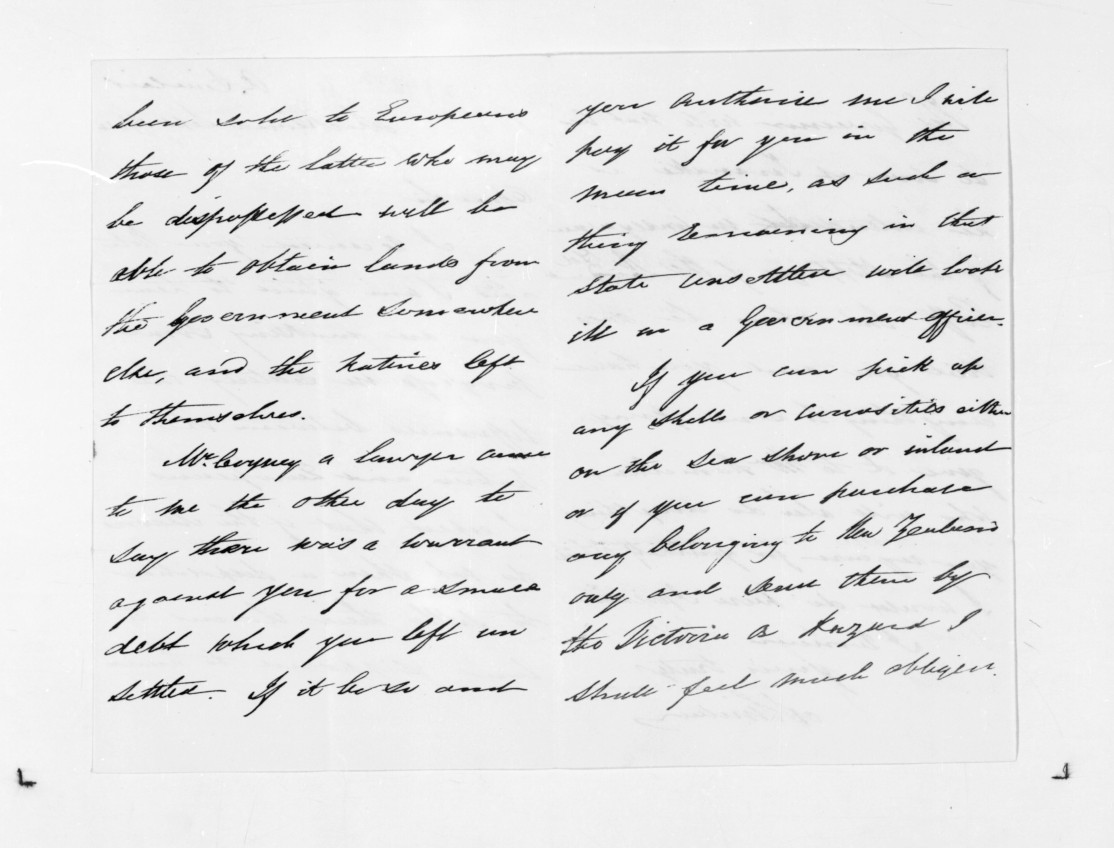 been sold to Europeans
those of the latter who may
be dispossessed will be
able to obtain lands from
the Government somewhere
else, and the natives left
to themselves.
a lawyer came
to me the other day to
say there was a warrant
against you for a small
debt which you left un
settled. If it be so and
you authorise me I will
pay it for you in the
mean time, as such a
thing remaining in that
state unsettled will look
ill in a Government officer.
If you can pick up
any shells or curiosities either
on the sea shore or inland
or if you can purchase
any belonging to New Zealand
only and send them by
the Victoria or Hazard I
shall feel much obliged.